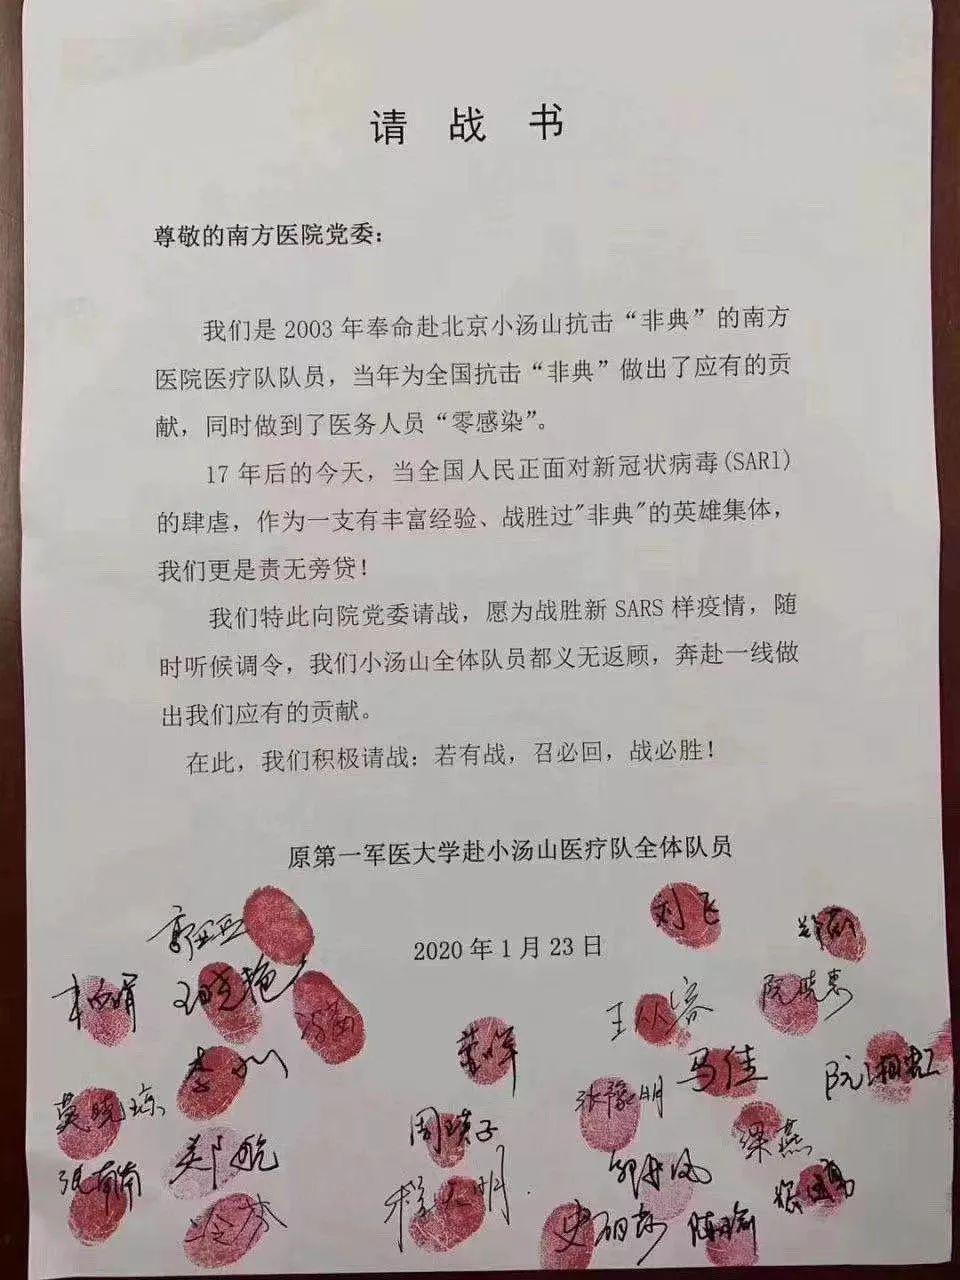 请 战 书
尊敬的南方医院党委：
我们是 2003 年奉命赴北京小汤山抗击“非典”的南方
医院医疗队队员，当年为全国抗击“非典”做出了应有的贡
献，同时做到了医务人员“零感染”。
17 年后的今天，当全国人民正面对新冠状病毒(SARI)
的肆虐，作为一支有丰富经验、战胜过"非典"的英雄集体，
我们更是责无旁贷！
我们特此向院党委请战，愿为战胜新 SARS 样疫情，随
时听候调令，我们小汤山全体队员都义无返顾，奔赴一线做
出我们应有的贡献。
在此，我们积极请战：若有战，召必回，战必胜！
原第一军医大学赴小汤山医疗队全体队员
刘飞
郭亚
2020 年 1 月 23 日
王晓艳
王从容
阮晓惠
马佳
阮湘虹
张豫明
莫晓琼
周瑛子
梁燕
郑航
张南南
冷芬
陈瑜